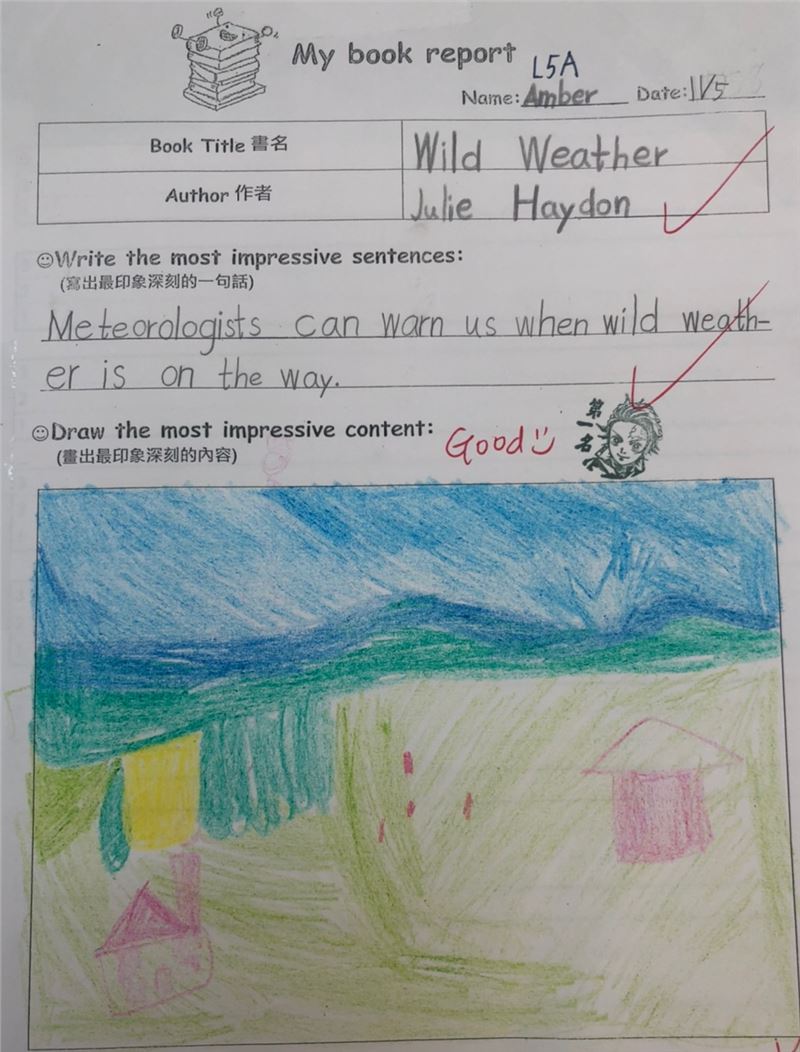 My book report
L5A
Name: Amber Date: 11/5
Book Title 書名 Wild Weather
Author 作者 Julie Haydon
Write the most impressive sentences:
(寫出最印象深刻的一句話)
Meteorologists can warn us when wild weath-
er is on the way.
Draw the most impressive content:
(畫出最印象深刻的內容)
Good
第一名